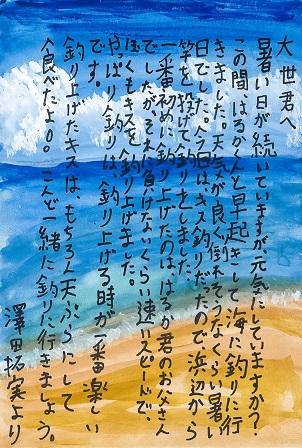 大世君へ
暑い日が続いていますが元気にしていますか？
この間、はるかくんと早起きして海に釣りに行
きました。天気が良く倒れそうなくらい暑い
日でした。今日は、キス釣りだったので浜辺から
竿を投げて釣りをしました。
一番初めに釣り上げたのは、はるか君のお父さん
でしたが、それに負けないくらい速いスピードで、
ぼくもキスを釣り上げました。
やっぱり釣りは、釣り上げる時が一番楽しい
です。
釣り上げたキスは、もちろん天ぷらにして
食べたよ。こんど一緒に釣りに行きましょう。
澤田拓実より